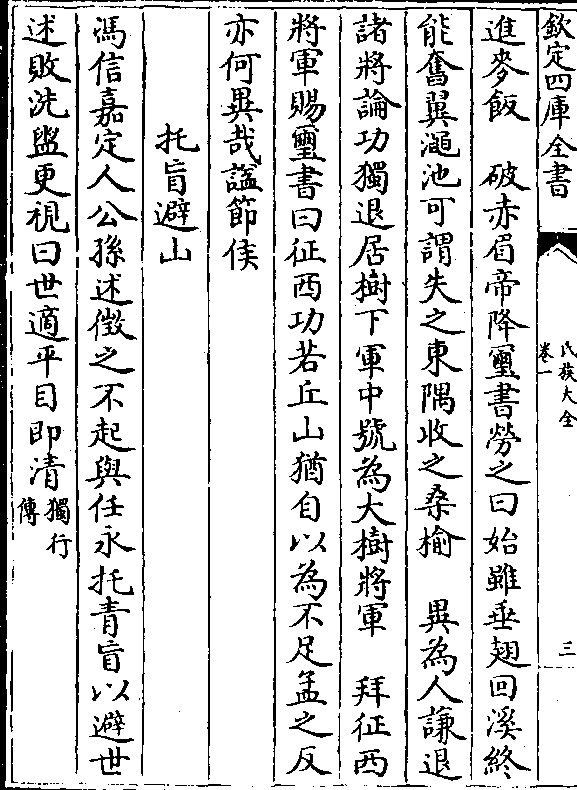 欽定四庫全書
氏族大全
卷一
三
進麥飯　破赤眉帝降璽書勞之曰始雖垂翅回溪終
能奮翼澠池可謂失之東隅收之桑榆　異為人謙退
諸將論功獨退居樹下軍中號為大樹將軍　拜征西
將軍賜璽書曰征西功若丘山猶自以為不足孟之反
亦何異哉諡節侯
托盲避山
馮信嘉定人公孫述徵之不起與任永托青盲以避世
述敗洗盥更視曰世適平目即清獨行
傳